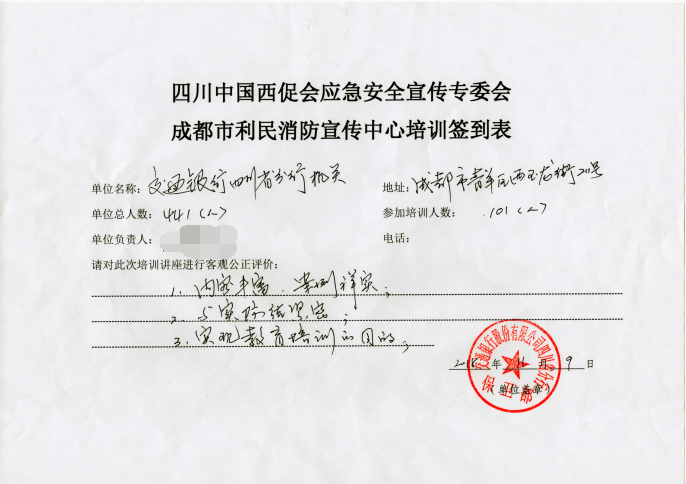 四川中国西促会应急安全宣传专委会
成都市利民消防宣传中心培训签到表
单位名称：交通银行四川省分行机关 地址：成都市青羊区西玉龙街211号
单位总人数：441（人） 参加培训人数：101（人）
单位负责人： 电话：
请对此次培训讲座进行客观公正评价：
1、内容丰富、案例祥实；
2、与实际结合紧密；
3、实现教育培训的目的；
交通银行股份有限公司四川省分行
保卫部
年 月 9 日
（单位盖章）